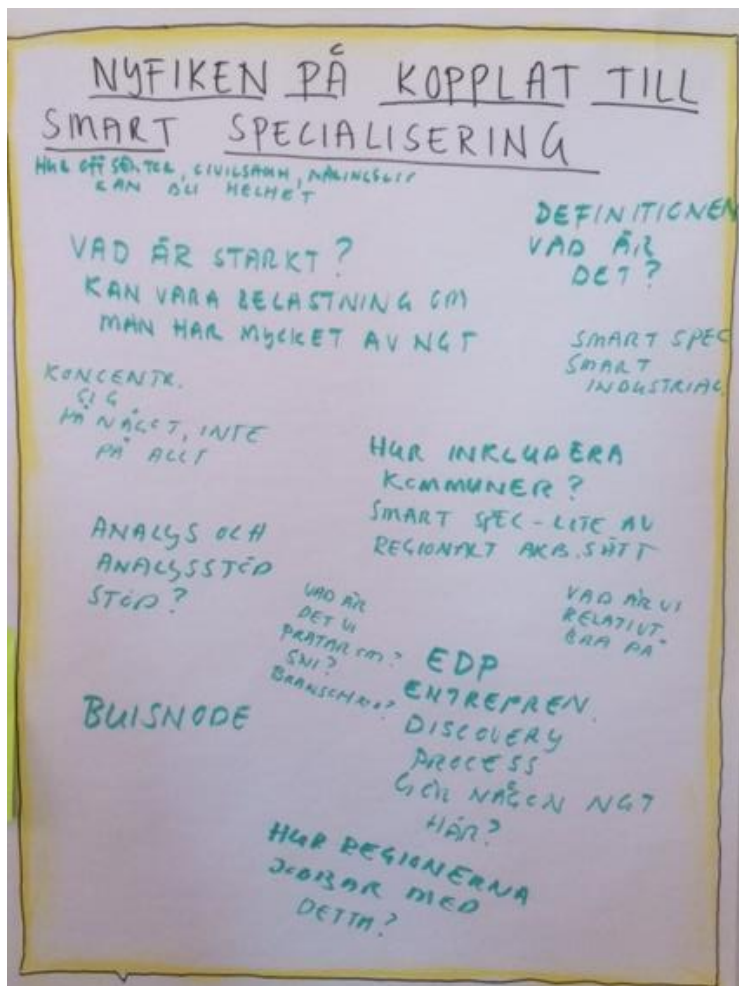 NYFIKEN PÅ KOPPLAT TILL
SMART SPECIALISERING
HUR OFF SEKTOR, CIVILSAMH, NÄRINGSLIV
KAN BLI HELHET
DEFINITIONEN
VAD ÄR
DET?
VAD ÄR STARKT?
KAN VARA BELASTNING OM
MAN HAR MYCKET AV NGT
SMART SPEC
SMART
INDUSTRIAL
KONCENTR.
SIG
PÅ NÅGOT, INTE
PÅ ALLT
HUR INKLUDERA
KOMMUNER?
SMART SPEC - LITE AV
REGIONALT ARB.SÄTT
ANALYS OCH
ANALYSSTÖD
STÖD?
VAD ÄR
DET VI
PRATAR OM?
SNI?
VAD ÄR VI
RELATIVT
BRA PÅ
EDP
ENTREPREN.
DISCOVERY
PROCESS
GÖR NÅGON NGT
HÄR?
BUISNODE
HUR REGIONERNA
JOBBAR MED
DETTA?